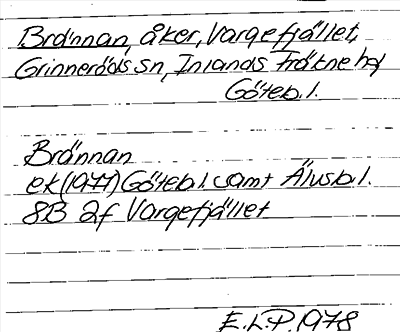 Brännan, åker, Vargefjället,
Grinneröds sn, Inlands Fräkne hd
Göteb. l.
Brännan
ek (1977) Göteb. l. samt Älvsb. l.
8B 2f Vargefjället
E.L.P. 1978